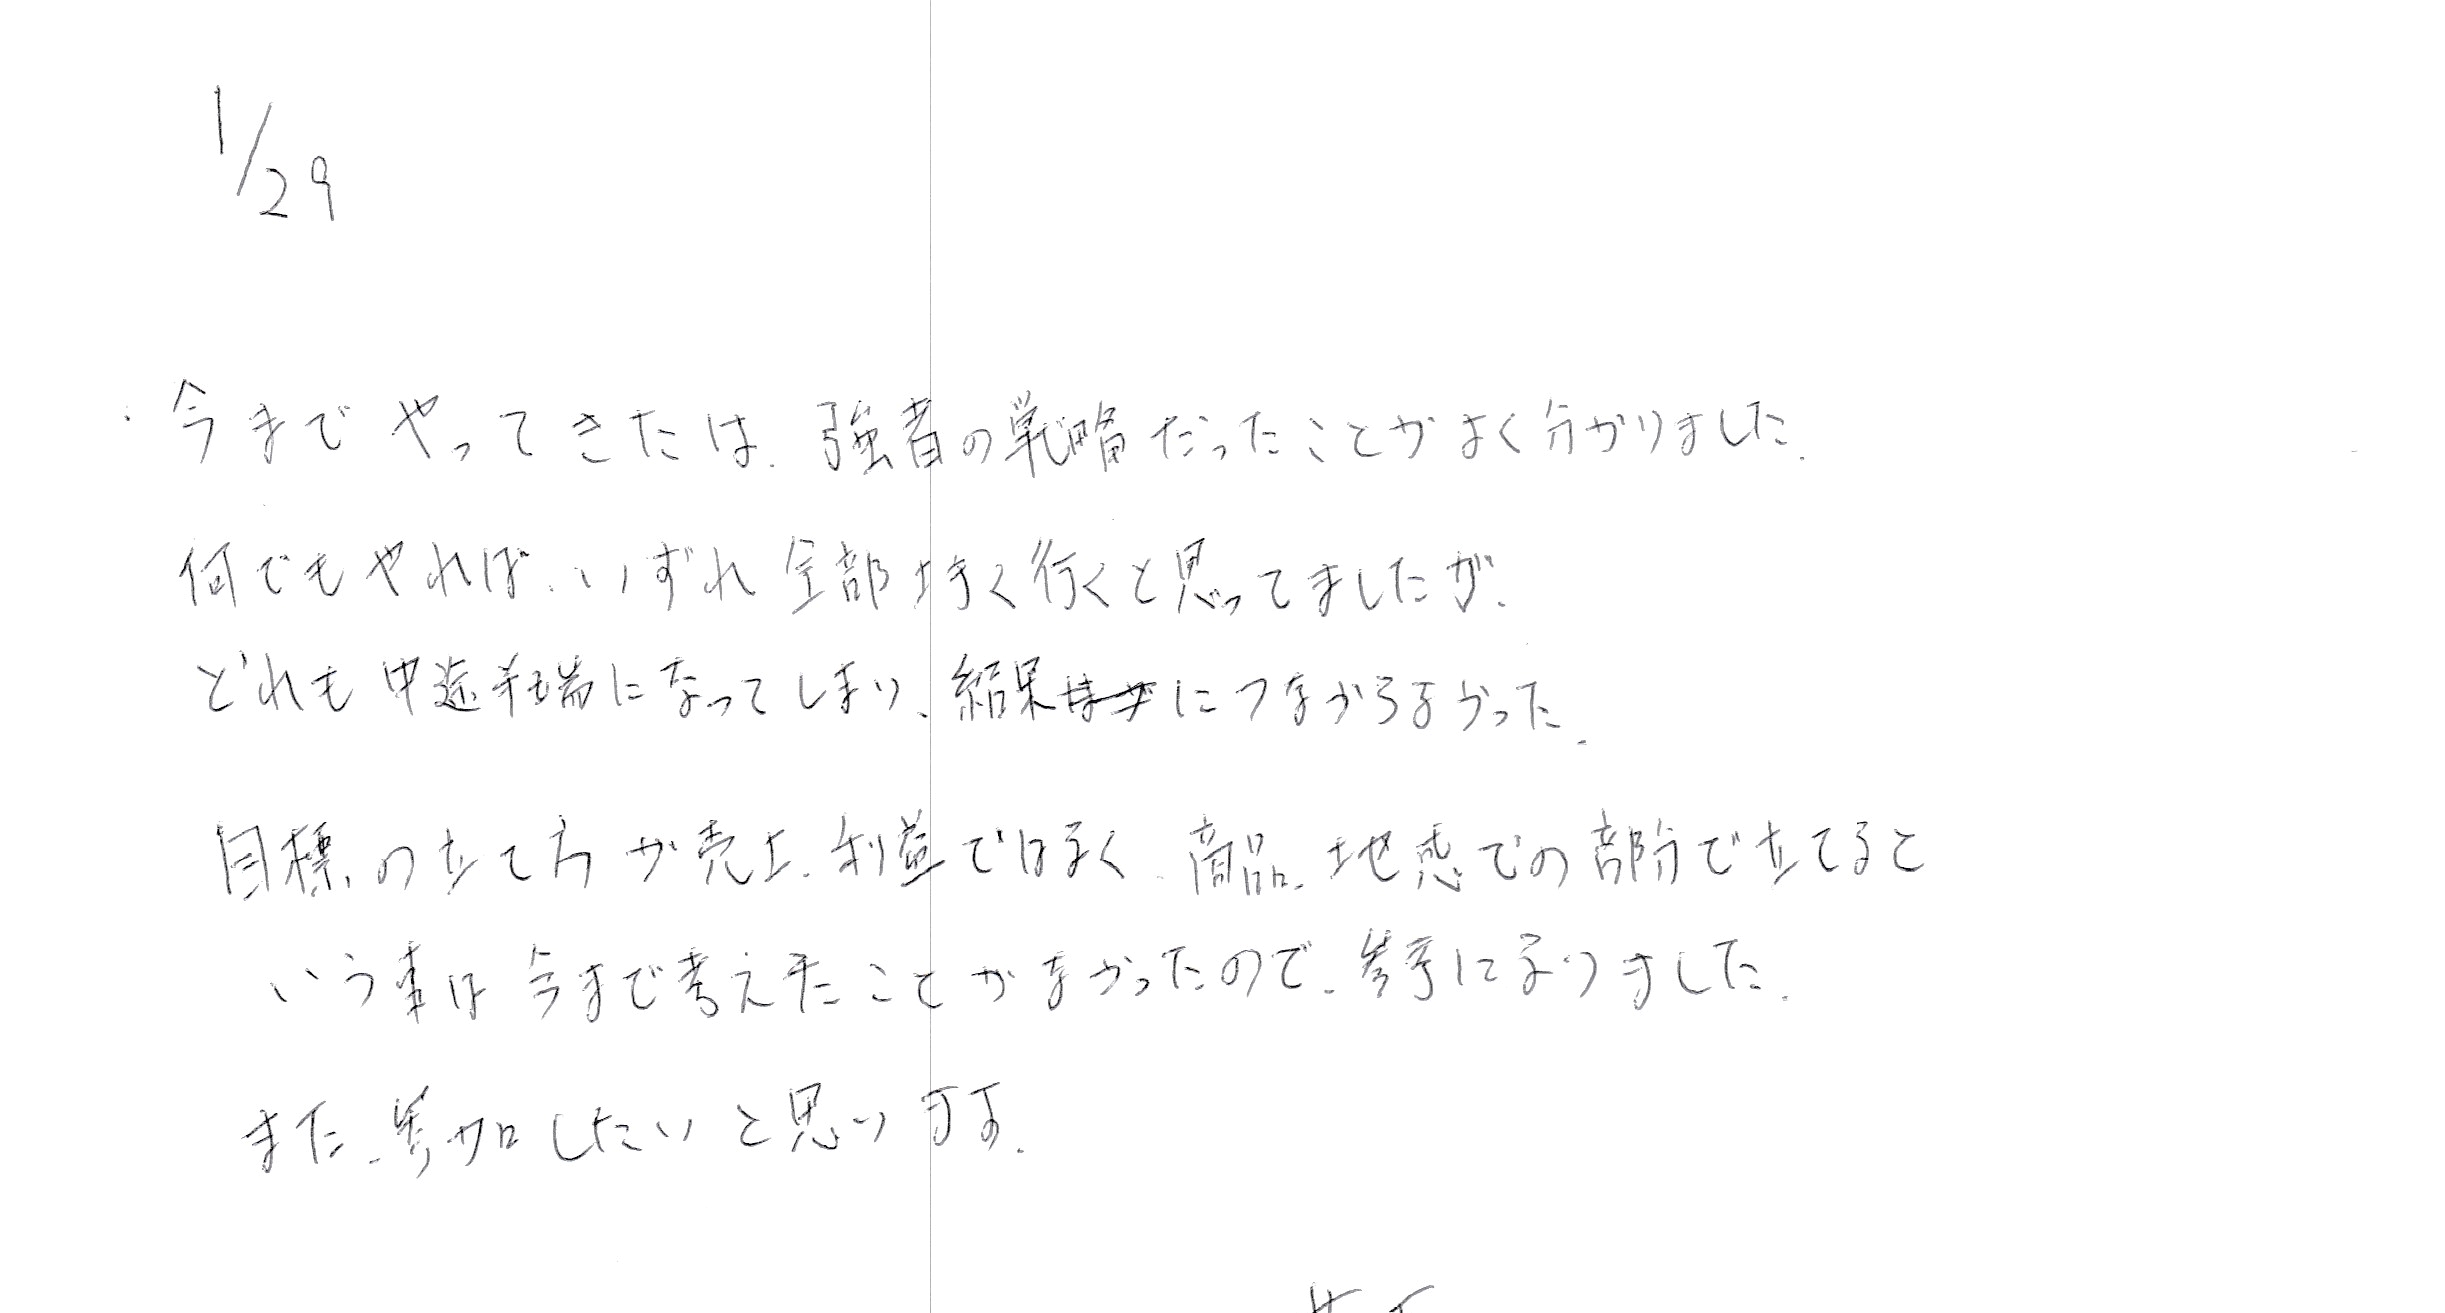 1/29
・今までやってきたは、強者の戦略だったことがよく分かりました。
何でもやれば、いずれ全部上手く行くと思ってましたが、
どれも中途半端になってしまり、結果につながらなかった。
目標の立て方が売上、利益ではなく、商品、地域での部分で立てると
いう事は今まで考えたことがなかったので、参考になりました。
また、参加したいと思います。